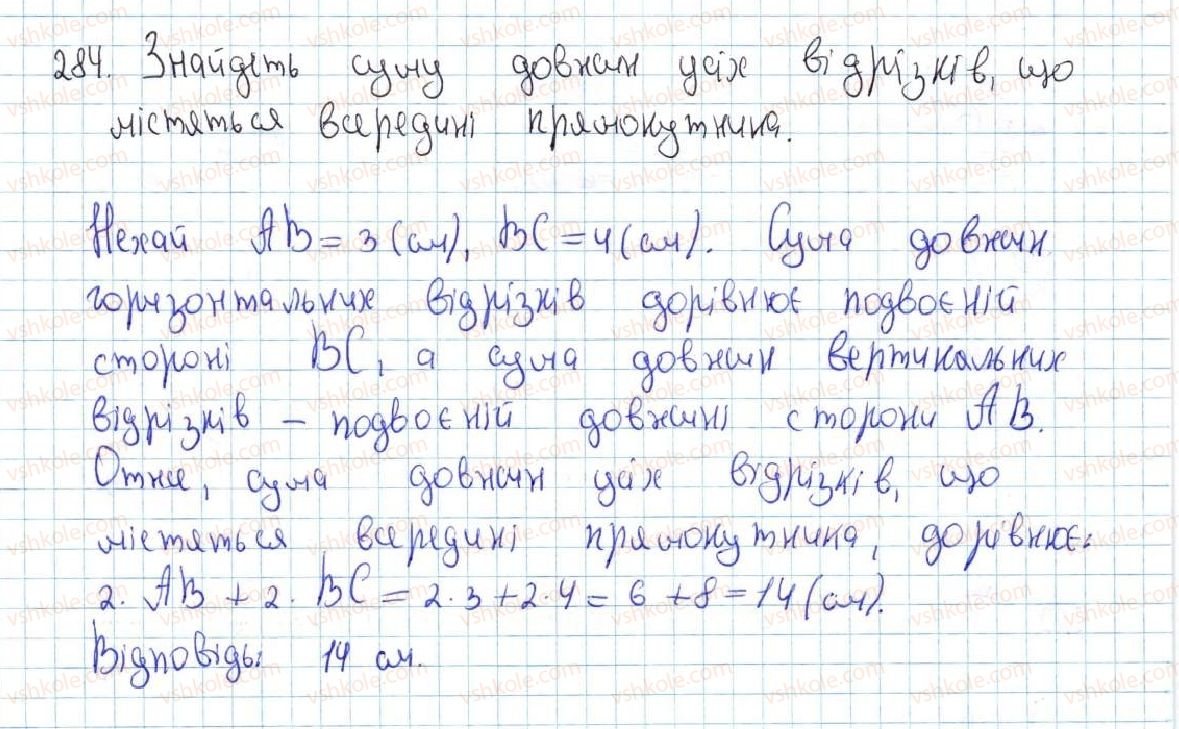 284. Знайдіть суму довжин усіх відрізків, що
містяться всередині прямокутника.
Нехай AB = 3 (см), BC = 4 (см). Сума довжин
горизонтальних відрізків дорівнює подвоєній
стороні BC, а сума довжин вертикальних
відрізків – подвоєній довжині сторони AB.
Отже, сума довжин усіх відрізків, що
містяться всередині прямокутника, дорівнює:
2 · AB + 2 · BC = 2 · 3 + 2 · 4 = 6 + 8 = 14 (см).
Відповідь: 14 см.